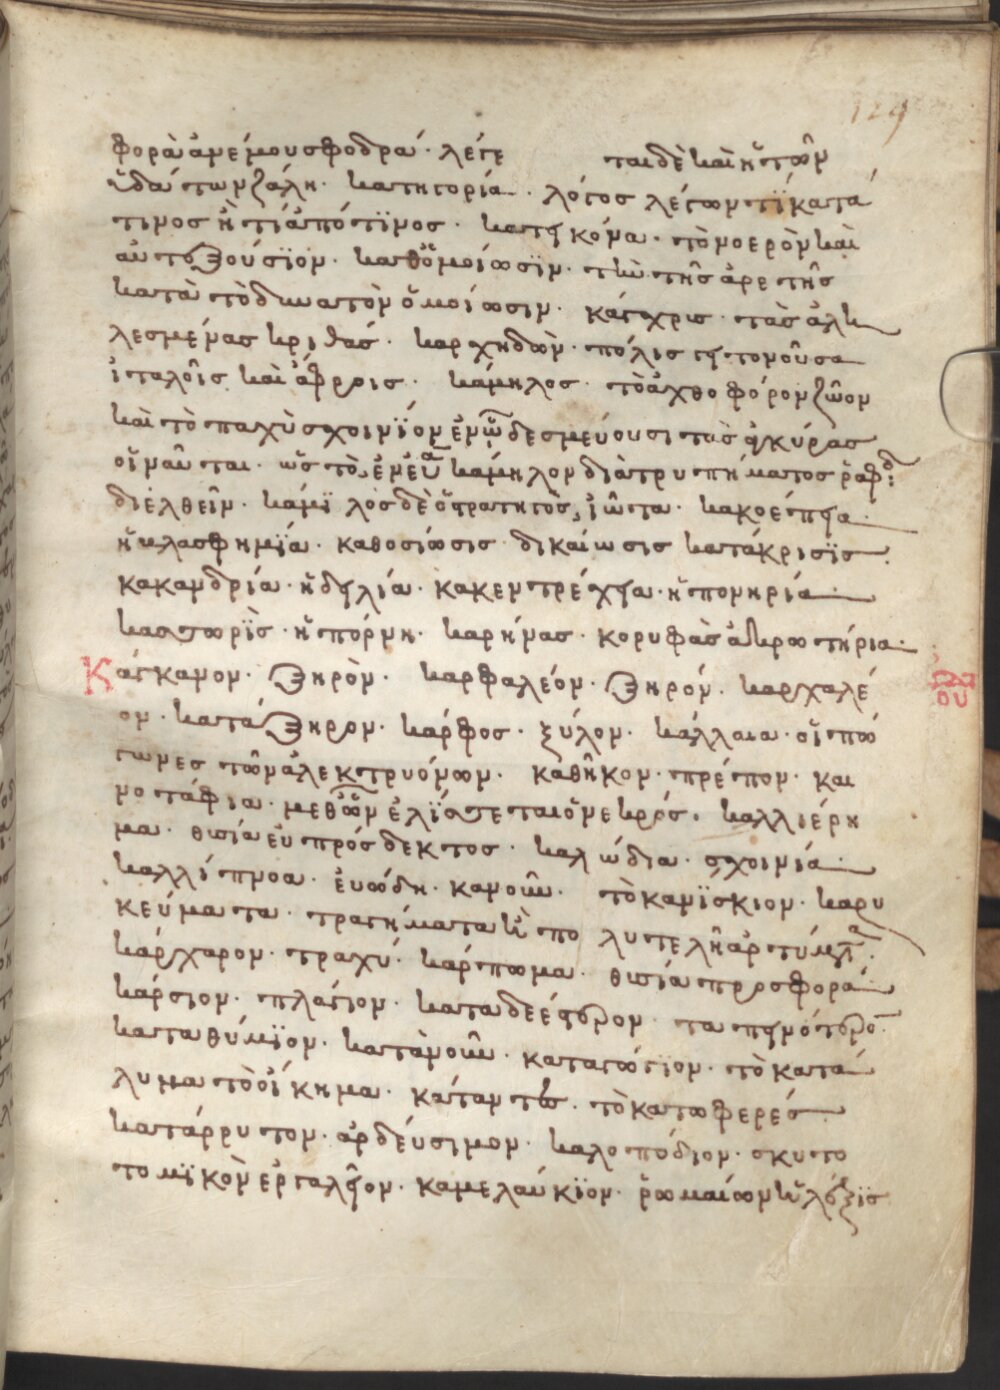 129
φορὰ ἀνέμου σφοδρά· λέγε ται δὲ καὶ ἡ τῶν
ὑδάτων ζάλη· κατηγορία· λόγος λέγων τί κατά
τινος ἢ τί ἀπό τινος· κατ εἰκόνα· τὸ νοερὸν καὶ
αὐτεξούσιον· καθ ὁμοίωσιν· τὴν τῆς ἀρετῆς
κατὰ τὸ δυνατὸν ὁμοίωσιν· κάγχρις· τὰς ἀλη
λεσμένας κριθάς· καρχηδὼν· πόλις γειτονοῦσα
ἰταλοῖς καὶ ἄφροις· κάμηλος· τὸ ἀχθοφόρον ζῶον
καὶ τὸ παχὺ σχοινίον ἐν ᾧ δεσμεύουσι τὰς ἀγκύρας
οἱ ναῦται· ὡς τὸ ἐν εὐα κάμηλον διὰ τρυπήματος ραφιδ
διελθεῖν· κάμιλος δὲ ὁ στρατηγὸς, ἰῶτα· κακοέπεια·
ἡ βλασφημία· καθοσίωσις· δικαίωσις κατάκρισις
κακανδρία· ἡ δειλία· κακεντρέχεια· ἡ πονηρία·
κασσωρὶς· ἡ πόρνη· καρήνας· κορυφὰς ἀκρωτήρια·
Κάγκανον· ξηρὸν· καρφαλέον· ξηρόν· καρχαλέ
ον· κατάξηρον· κάρφος· ξύλον· κάλλαια· οἱ πώ
γωνες τῶν ἀλεκτρυόνων· καθῆκον· πρέπον· και
νοτάφια· μεθ ὧν ἑλίσσεται ὁ νεκρός· καλλιέρη
μα· θυσία εὐπρόσδεκτος· καλώδια· σχοινία·
καλλίπνοα· εὐώδη· κανοῦν· τὸ κανίσκιον· καρυ
κεύματα· τραγήματα ἢ πολυτελῆ ἀρτύματα·
κάρχαρον· τραχύ· κάρπωμα· θυσία προσφορά·
κάρσιον· πλάγιον· καταδεέστερον· ταπεινότερον·
καταθύμιον· κατὰ νοῦν· καταγώγιον· τὸ κατά
λυμα τὸ οἴκημα· κάταντες· τὸ κατωφερές
κατάρρυτον· ἀρδεύσιμον· καλοπόδιον· σκυτο
τομικὸν ἐργαλεῖον· καμελαύκιον· ῥωμαίων ἡ λέξις